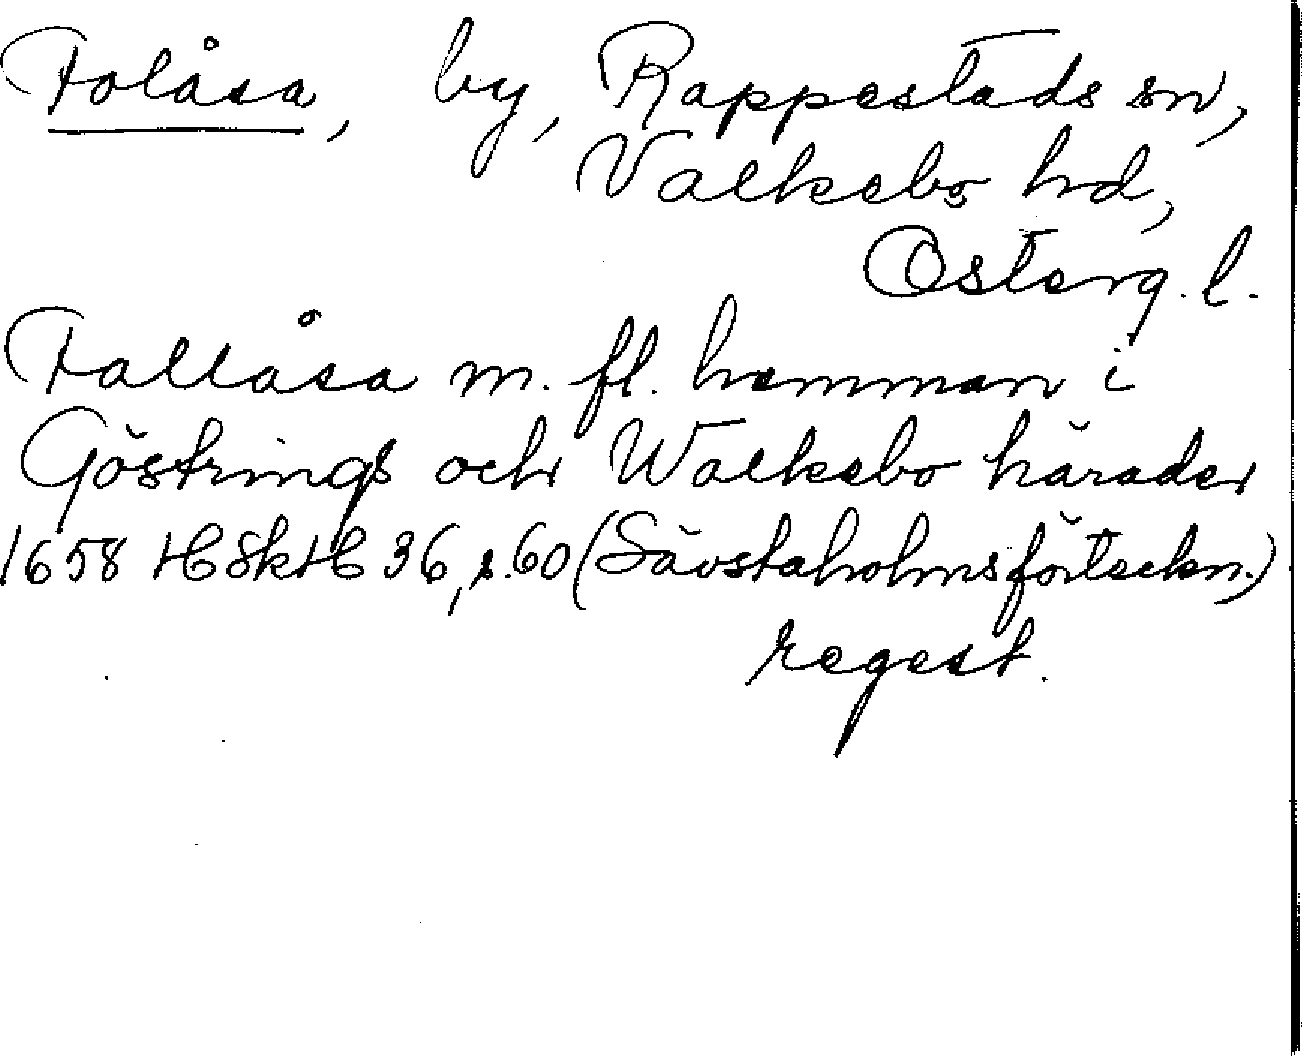 Folåsa, by, Rappestads sn,
Valkebo hd,
Österg. l.
Fallåsa m. fl. hemman i
Göstrings och Walkebo härader
1658 HSkH 36, s. 60 (Sävstaholmsförteckn.)
regest.